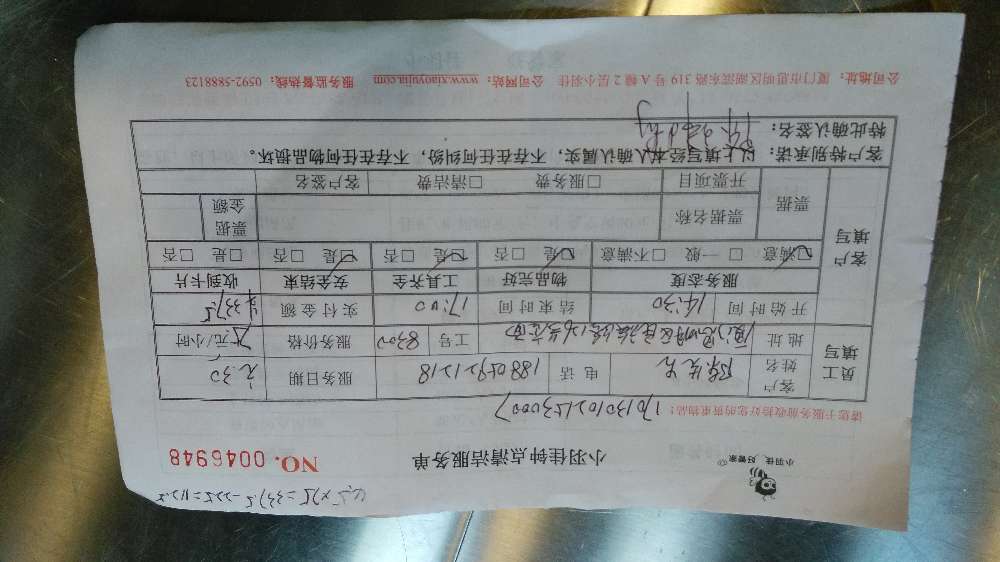 小羽佳 好管家
小羽佳钟点清洁服务单
NO. 0046948
请您于服务前收拾好您的贵重物品!
员工填写
客户姓名 陈先生 电话 服务日期
地址 工号 8300 服务价格 元/小时
开始时间 14:30 结束时间 17:00 实付金额
客户填写
服务态度 物品完好 工具齐全 安全结束 收到卡片
☑满意 □一般 □不满意 ☑是 □否 ☑是 □否 ☑是 □否 □是 □否
票据 票据名称 票据金额
开票项目 □服务费 □清洁费 客户签名
客户特别承诺:以上填写经本人确认属实,不存在任何纠纷,不存在任何物品损坏。
特此确认签名:
公司地址:厦门市思明区湖滨东路 319 号 A 幢 2 层小羽佳 公司网站:www.xiaoyujia.com 服务监督热线:0592-5888123